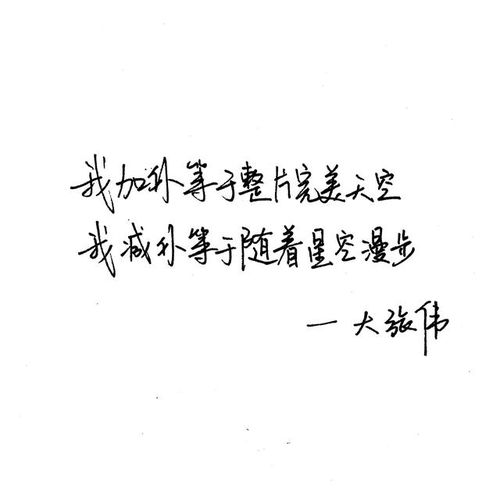 我加补等于整片完美天空
我减补等于随着星空漫步
一大张伟